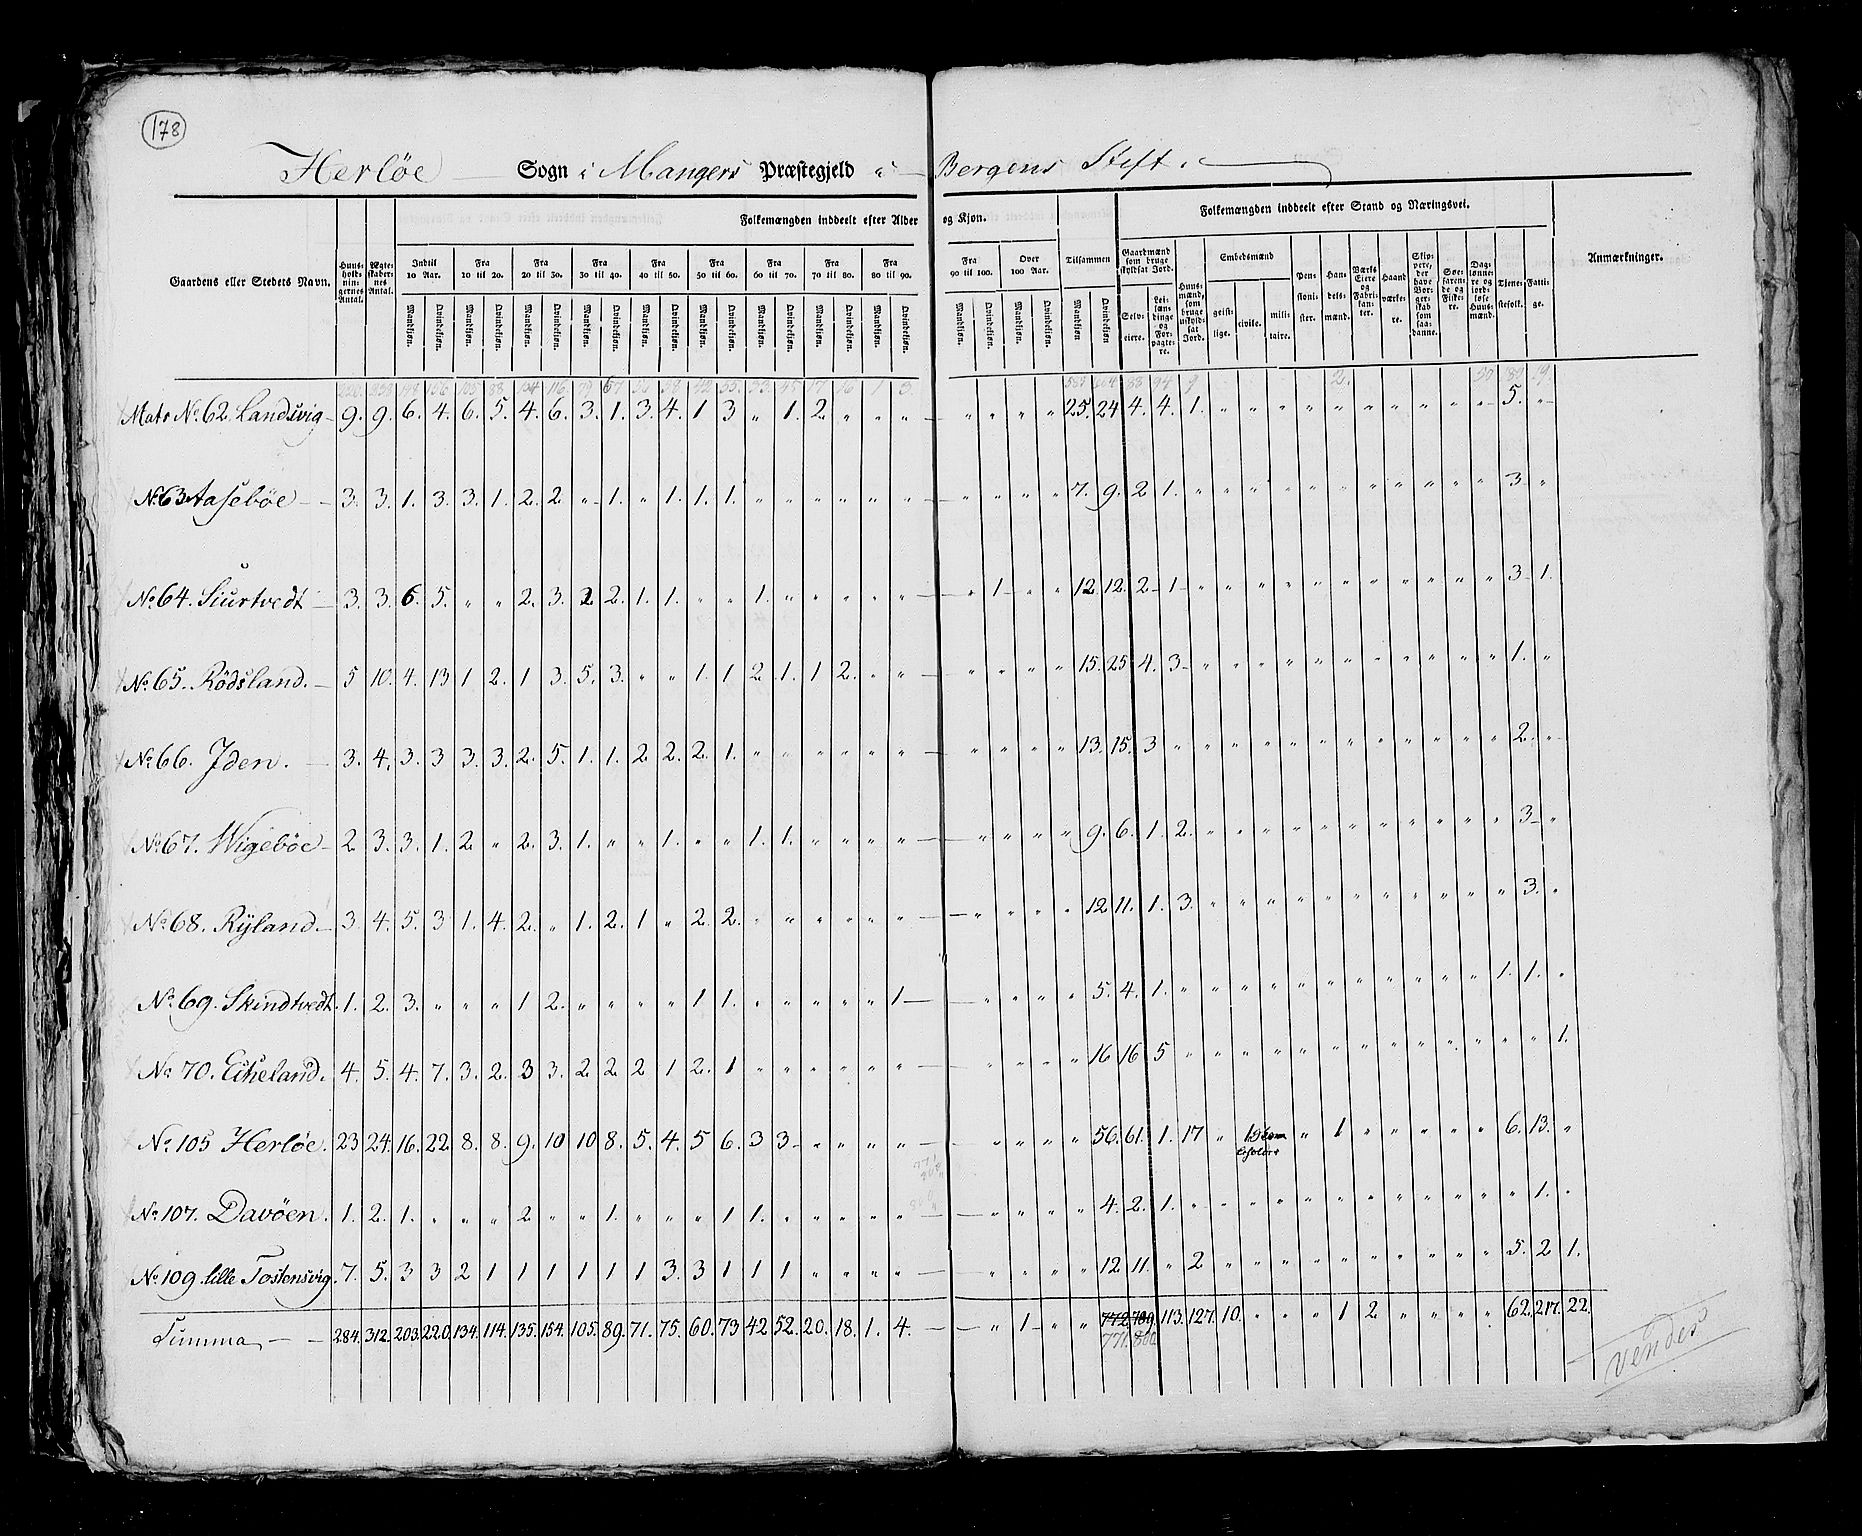 178
Herløe Sogn i Mangers Præstegjeld i Bergens Stift.
Gaardens eller Stedets Navn.
Huus- hold- nin- gernes Antal.
Ægte- skaber- nes Antal.
Folkemængden inddeelt efter Alder og Kjøn.
Indtil 10 Aar. Fra 10 til 20. Fra 20 til 30. Fra 30 til 40. Fra 40 til 50. Fra 50 til 60. Fra 60 til 70. Fra 70 til 80. Fra 80 til 90. Fra 90 til 100. Over 100 Aar.
Mandkjøn. Qvindekjøn. Mandkjøn. Qvindekjøn. Mandkjøn. Qvindekjøn. Mandkjøn. Qvindekjøn. Mandkjøn. Qvindekjøn. Mandkjøn. Qvindekjøn. Mandkjøn. Qvindekjøn. Mandkjøn. Qvindekjøn. Mandkjøn. Qvindekjøn. Mandkjøn. Qvindekjøn. Mandkjøn. Qvindekjøn.
Tilsammen
Mandkjøn Qvindekjøn
Folkemængden inddeelt efter Stand og Næringsvei.
Gaardmænd som bruge skyldsat Jord.
Selv- eiere.
Lei- læn- dinge og For- pagte- re.
Huus- mænd, som bruge uskyld- sat Jord.
Embedsmænd
geist- lige. civile. mili- taire.
Pen- sioni- ster.
Han- dels- mænd.
Værks Eiere og Fabri- kan- ter.
Haand værke- re.
Skip- pere, der have Bor- ger- skab som saa- danne.
Søe- faren- de og Fiske- re.
Dag- lønne- re og jord- løse Huus- mænd.
Tjene- stefolk.
Fatti- ge.
Anmærkninger.
Matr No. 62. Landsvig 9. 9. 6. 4. 6. 5. 4. 6. 3. 1. 3. 4. 1 3 " 1. 2 " " " " " " " 25. 24 4. 4. 1. " " " " " " " " " " " 5. "
No. 63 Aasebøe 3. 3. 1. 3. 3. 1. 2. 2 " 1. " 1. 1. 1. " " " " " " " " " " 7. 9. 2 1. " " " " " " " " " " " " 3 "
No. 64. Siurtvedt 3. 3. 6. 5. " " 2. 3. 2 2. 1. 1. " " 1. " " " " " " 1 " " 12. 12. 2 1 " " " " " " " " " " " " 3 1.
No. 65. Rødsland. 5 10. 4. 13 1 2. 1 3. 5. 3. " " 1. 1 2 1. 1 2. " " " " " " 15. 25 4. 3 " " " " " " " " " " " " 1. "
No. 66. Iden. 3. 4. 3. 3 3. 3. 2. 5. 1. 1. 2 2. 2. 1. " " " " " " " " " " 13. 15. 3 " " " " " " " " " " " " " 2. "
No. 67. Wigebøe 2 3. 3. 1. 2 " 2. 3. 1. " " 1. " " 1. 1. " " " " " " " " 9. 6. 1. 2. " " " " " " " " " " " " 3 "
No. 68. Rÿland 3. 4. 5. 3 1. 4. 2. " 1. 2. 1 " 2. 2. " " " " " " " " " " 12 11. 1. 3. " " " " " " " " " " " " 3. "
No. 69. Skindtvedt. 1. 2. 3. " " " 1 2. " " " " 1 1. " " " " " 1 " " " " 5. 4. 1. " " " " " " " " " " " " 1. 1. "
No. 70. Eikeland. 4. 5. 4. 7. 3. 2. 3 3. 2 2. 2 1 2. 1 " " " " " " " " " " 16 16 5 " " " " " " " " " " " " " " 1.
No. 105 Herløe. 23 24. 16. 22. 8. 8. 9. 10 10 8. 5. 4. 5 6. 3 3 " " " " " " " " 56. 61. 1. 17 " 1 " 1 " " " " " 6. 13. "
No. 107. Davøen. 1. 2. 1. " " " 2 " " 1. " " " 1 1. " " " " " " " " " 4. 2. 1. " " " " " " " " " " " " " 1. "
No. 109. lille Tostensvig. 7. 5. 3 3 2 1 1 1 1 1 1 3. 3 1 1 1 " " " " " " " " 12 11. " 2 " " " " " " " " " " " 5. 2 1.
Summa 284. 312. 203. 220. 134. 114. 135. 154. 105. 89. 71. 75. 60. 73 42 52. 20. 18. 1. 4. " 1 " " 772. 799. 113. 127. 10. " " " " 1 2. " " " " 62. 217. 22.
771. 800
vendes